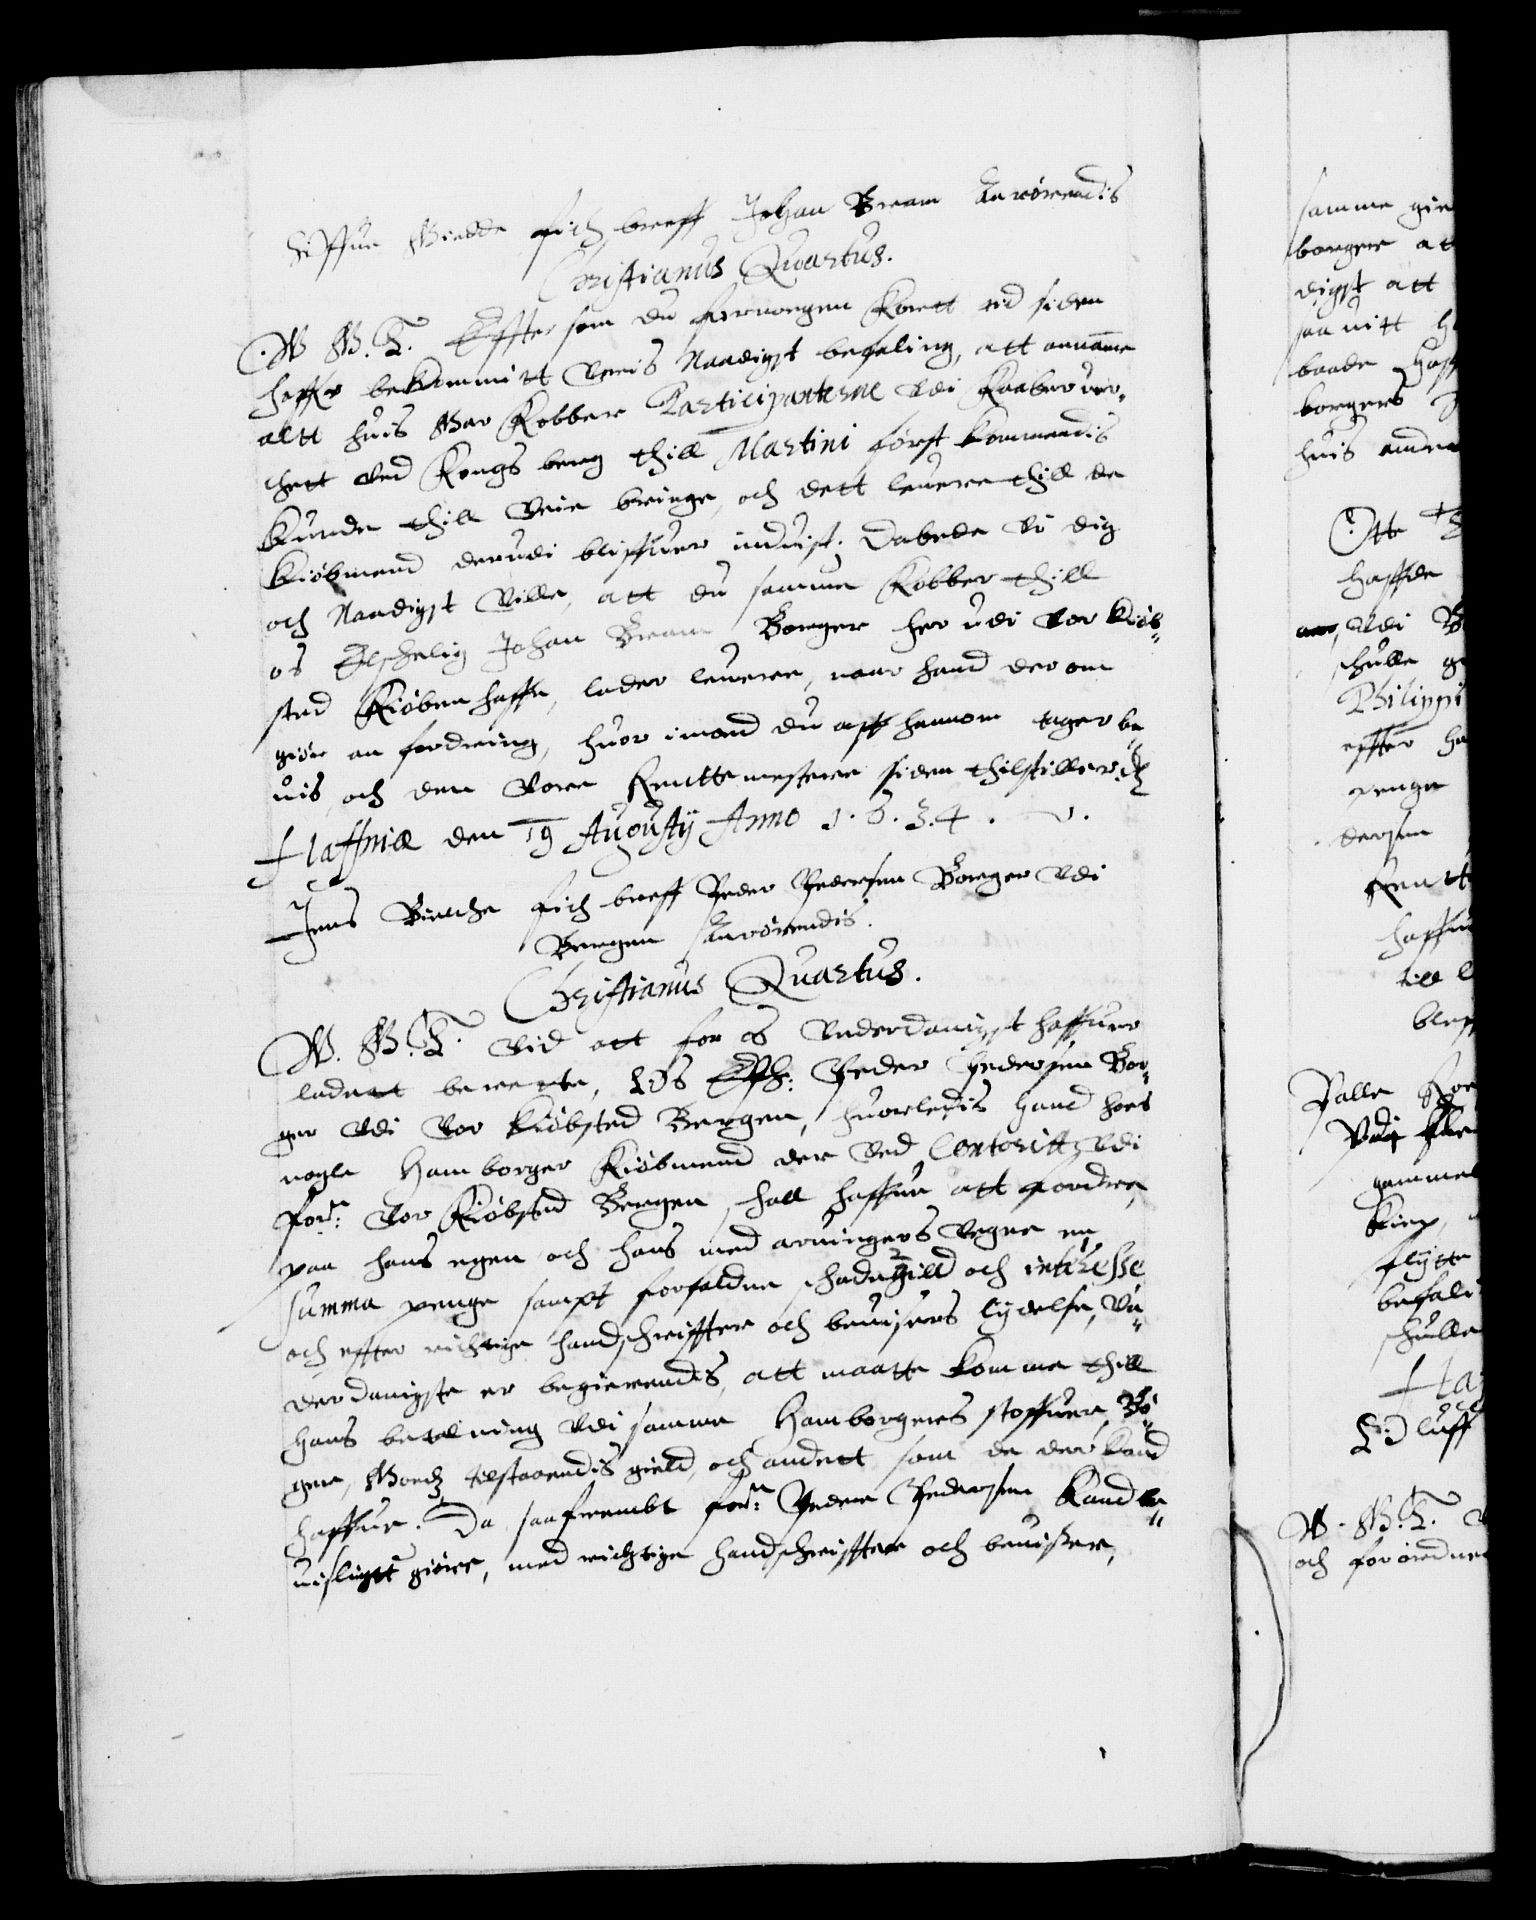 Siffuer Giedde fich breff Johan Bram Anrørendis
Christianus Quartus.
W. G. T. Efftersom du forrnogen kortt tid siden
haffr bekommitt voris Naadigst befaling, att annamme
altt huis Gar Kobber Participanterne vdi Kaaberuer¬
chett ved Kongsberg thill Martini først kommendis
kunde thill veie bringe, och dett leuere thill de
kiøbmend derudi bliffuer induist. Da bede vi dig
och Naadigst ville, att du samme Kobber thill
os Elschelig Johan Bram Borger her udi vor kiøb¬
sted Kiøbenhaffn, lader leuere, naar hand der om
giør anfordring, huor imod du aff hannom tager be¬
uis, och den vore Renttemestere siden thilstiller. etc.
Haffniæ den 19 Augusty Anno 1.6.3.4.
Jens Bielche fich breff Peder Pedersen Borger vdi
Bergen Anrørendis.
Christianus Quartus.
W. G. T. Vid att for os Vnderdanigst haffuer
ladett berette, Os Elsch: Peder Pedersen Bor¬
ger vdi vor kiøbsted Bergen, huorledis hand hoes
nogle Hamborger Kiøbmend der ved Contoritt vdi
for.ne vor Kiøbsted Bergen, shall haffue att fordre,
paa hans egen och hans med aruingers vegne en
summa penge sampt forfalden schadegield och interesse
och effter richtige handschriffter och beuisers lydelse, Vn¬
derdanigste er begierendis, att maatte komme thill
hans betalning vdi samme Hamborgers stoffuer, Bø¬
ger, Godz, tilstaaendis gield, och andett som de der kand
haffue. Da saafrembt for.ne Peder Pedersen kand be¬
uisligtt giøre, med richtige handschriffter och beuisser,
samme gie
borger at
digst att
saauitt h
baade Haff
borgers
huis anden
Otte
haffde
vdi B
schulle g
Philippi
effter ha
penge
dersen
Rentt
haffue
till
bleff
Palle
gammel
flytte
befali
schulle
Haf
Oluff
W. G. T. V
och forordne